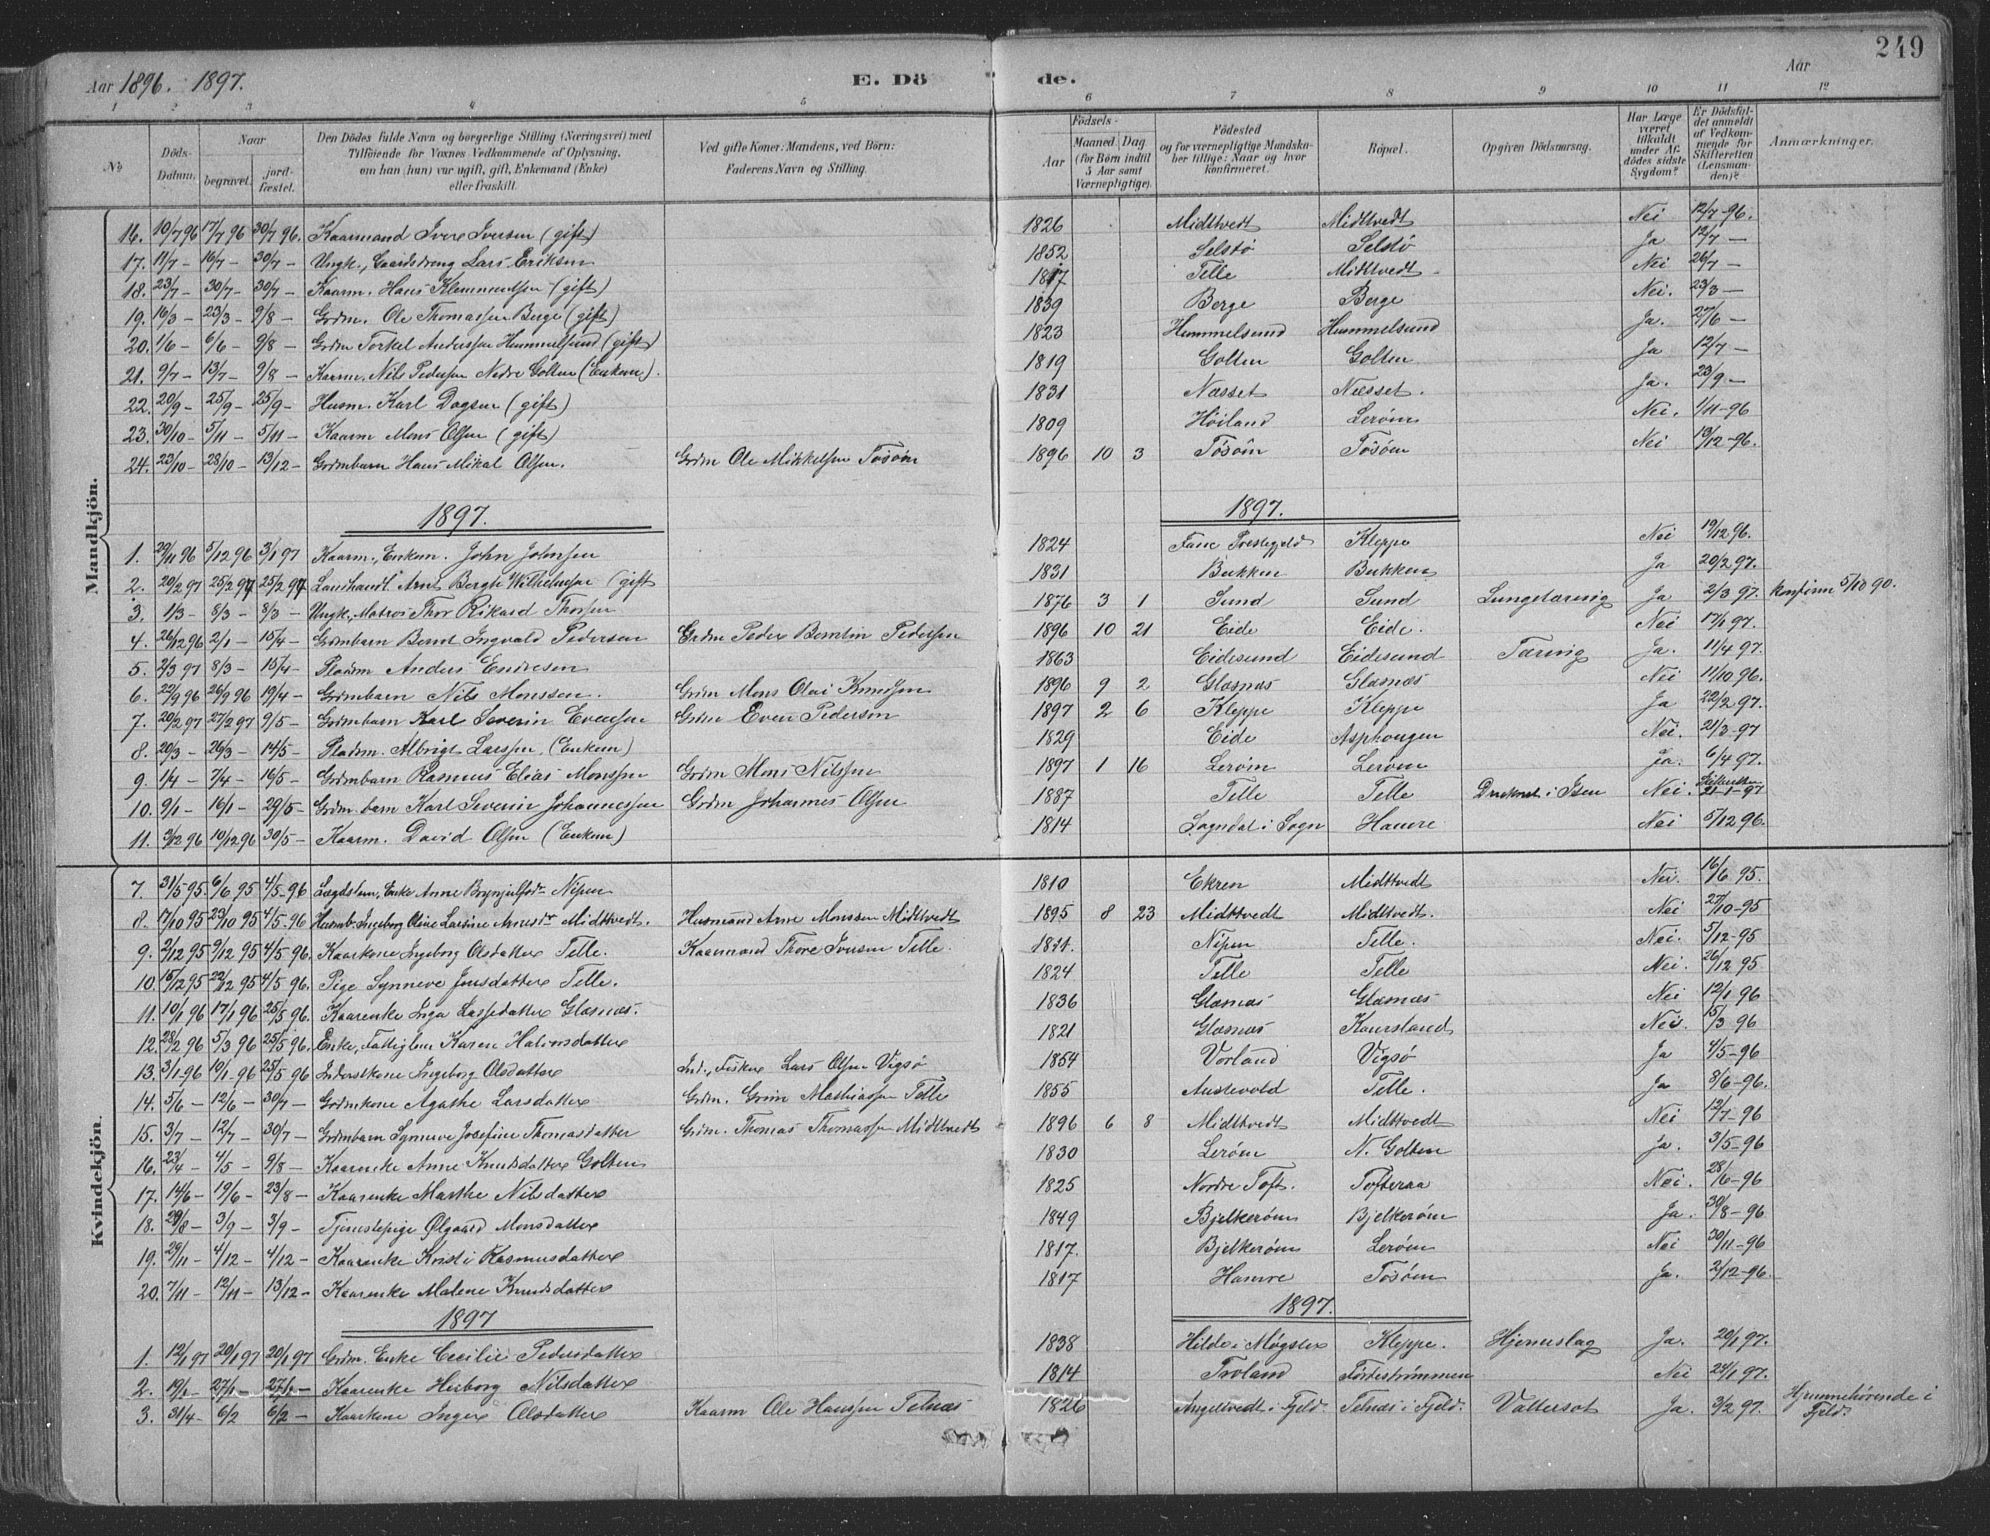 249
Aar 1896. 1897. E. Dö de. Aar
1 2 3 4 5 6 7 8 9 10 11 12
№ Döds-Datum. Naar begravet. jordfæstet. Den Dödes fulde Navn og borgerlige Stilling (Næringsvei) med Tilföiende for Voxnes Vedkommende af Oplysning, om han (hun) var ugift, gift, Enkemand (Enke) eller fraskilt. Ved gifte Koner: Mandens, ved Börn: Faderens Navn og Stilling. Födsels- Aar Maaned Dag (for Börn indtil 5 Aar samt Værnepligtige). Födested og for værnepligtige Mandskaber tillige: Naar og hvor konfirmeret. Böpæl. Opgiven Dödsaarsag. Har Læge været tilkaldt under Afdödes sidste Sygdom? Er Dödsfaldet anmeldt af Vedkommende for Skifteretten (Lensmanden)? Anmærkninger.
Mandkjön.
16. 10/7 96 17/7 96 30/7 96. Kaarmand Iver Iversen (gift) 1826 Midttvedt Midttvedt Nei 12/7-96.
17. 11/7 – 16/7 – 30/7 – Ungk., Gaardsdreng Lars Eriksen 1852 Selstø Selstø Ja 12/7 –
18. 23/7 – 30/7 – 30/7 – Kaarm. Hans Klemmentsen (gift) 1817 Telle Midttvedt Nei 26/7 –
19. 16/3 – 23/3 – 9/8 – Grdm. Ole Thomassen Berge (gift) 1839 Berge Berge Nei. 23/3 –
20. 1/6 – 6/6 – 9/8 – Grdm Torkel Anderssen Hummelsund (gift) 1823 Hummelsund Hummelsund Ja. 27/6 –
21. 9/7 – 13/7 – 9/8 – Kaarm. Nils Pedersen Nedre Golten (Enkem.). 1819 Golten Golten Ja 12/7 –
22. 20/9 – 25/9 – 25/9 – Husm. Karl Dagsen (gift) 1831 Næsset Næsset. Ja. 23/9 –
23. 30/10 – 5/11 – 5/11 – Kaarm Mons Olsen (gift) 1809 Høiland Lerøen Nei. 1/11-96
24. 22/10 – 28/10 – 13/12 – Grdmbarn Hans Mikal Olsen. Grdm Ole Mikkelsen Tøsøen 1896 10 3 Tøsøen Tøsøen Nei 13/12-96.
1897. 1897.
1. 29/11 96 5/12 96 3/1 97 Kaarm., Enkem. John Johnsen 1824 Fane Prestegjeld Kleppe Nei 19/12 96.
2. 20/2 97 25/2 97 25/2 97 Landhandl. Arnt Bergh Wilhelmsen (gift 1831 Bukken Bukken Ja 20/2 97.
3. 1/3 – 8/3 – 8/3 – Ungk., Matros Thor Rikard Thorsen 1876 3 1 Sund Sund Lungetæring Ja 2/3 97. Konfirm 5/10 90.
4. 26/12 96 2/1 – 15/4 – Grdmbarn Bernt Ingvald Pedersen Grdm Peder Berntin Pedersen 1896 10 21 Eide Eide. Nei 17/1 97.
5. 2/3 97 8/3 – 15/4 – Pladsm Anders Endresen 1863 Eidesund Eidesund Tæring Ja. 11/4 97.
6. 22/9 96 26/9 96 19/4 – Grdmbarn Nils Monssen. Grdm Mons Olai Knudsen 1896 9 2 Glæsnæs Glæsnæs Nei 11/10 96.
7. 20/2 97 27/2 97 9/5 – Grdmbarn Karl Severin Evensen Grdm Even Pedersen 1897 2 6 Kleppe Kleppe Ja 22/2 97.
8. 20/3 – 26/3 – 14/5 – Pladsm. Albrigt Larssen (Enkem) 1829 Eide Asphougen Nei. 21/3-97
9. 1/4 – 7/4 – 16/5 – Grdmbarn Rasmus Elias Monssen Grdm Mons Nilssen 1897 1 16 Lerøen Lerøen Ja. 6/4 97.
10. 9/1 – 16/1 – 29/5 – Grdm. barn Karl Severin Johannessen Grdm Johannes Olsen 1887 Telle Telle Druknet i Isen Nei. 21-1-97
11. 2/12 96 10/12 96 30/5 – Kaarm. David Olsen (Enkem) 1814 Sogndal i Sogn Hamre Nei 5/12 96.
Kvindekjön.
7. 31/5 95. 6/6 95 4/5-96 Lægdslem, Enke Anne Brynjulfsdr Nipen 1810 Ekren Midttvedt Nei. 16/6 95.
8. 17/10 95 23/10 95 4/5-96 Husmb. Ingeborg Oline Larsine Arnesdr Midttvedt. Husmand Arne Monssen Midttvedt 1895 8 23 Midttvedt Midttvedt. Nei 27/10-95
9. 2/12 95 9/12 95 4/5-96. Kaarkone Ingeborg Olsdatter Telle. Kaarmand Thore Iversen Telle. 1811. Nipen Telle. Nei. 5/12-95
10. 15/12 95 22/12 95 4/5 96. Pige Synneve Jonsdatter Telle. 1824 Telle Telle Nei. 26/12 95
11. 10/1 96 17/1 96 25/5 96. Kaarenke Inga Lassedatter Glæsnæs. 1836 Glæsnæs Glæsnæs Nei 12/1 96
12. 28/2 96 5/3 96 25/5 96. Enke, Fattiglem Karen Halvorsdatter 1821 Glæsnæs Kaursland Nei. 15/3 96
13. 3/1 96 10/1 96 25/5 96 Inderstkone Ingeborg Olsdatter Ind., Fisker Lars Olsen Vigsø 1854 Vorland Vigsø Ja 4/5-96
14. 5/6 – 12/6 – 30/7 – Grdmkone Agathe Larsdatter Grdm. Grim Mathiassen Telle 1855 Austevold Telle. Ja 8/6-96.
15. 3/7 – 12/7 – 30/7 – Grdmbarn Synneve Josefine Thomasdatter Grdm. Thomas Thomassen Midttvedt 1896 6 8 Midttvedt Midttvedt Nei 12/7-96
16. 23/4 – 4/5 – 9/8 – Kaarenke Anne Knudsdatter Golten 1830 Lerøen N. Golten Ja. 3/5-96
17. 14/6 – 19/6 – 23/8 – Kaarenke Marthe Nilsdatter 1825 Nordre Toft. Tofteraa Nei. 28/6-96
18. 29/8 – 3/9 – 3/9 – Tjenestepige Ølgaard Monsdatter 1849 Bjelkerøen Bjelkerøen Ja. 30/8-96
19. 29/11 – 4/12 – 4/12 – Kaarenke Kristi Rasmusdatter 1817. Bjelkerøen Lerøen Nei 30/11-96
20. 7/11 – 12/11 – 13/12 – Kaarenke Malene Knudsdatter 1817 Hamre Tøsøen Ja. 2/12-96.
1897 1897.
1. 12/1 97 20/1 97 20/1 97 Grdm. Enke Cecilie Pedersdatter 1838 Hilde i Møgster Kleppe. Hjerneslag Ja. 20/1 97.
2. 19/1 – 27/1 – 27/1 – Kaarenke Herborg Nilsdatter 1814 Troland Førdestrømmen Nei 24/1 97.
3. 31/4 – 6/2 6/2 – Kaarkone Inger Olsdatter Kaarm Ole Hanssen Telnæs 1826 Angeltvedt i Fjeld. Telnæs i Fjeld. Vattersot Ja. 3/2 97. Hjemmehørende i Fjeld.